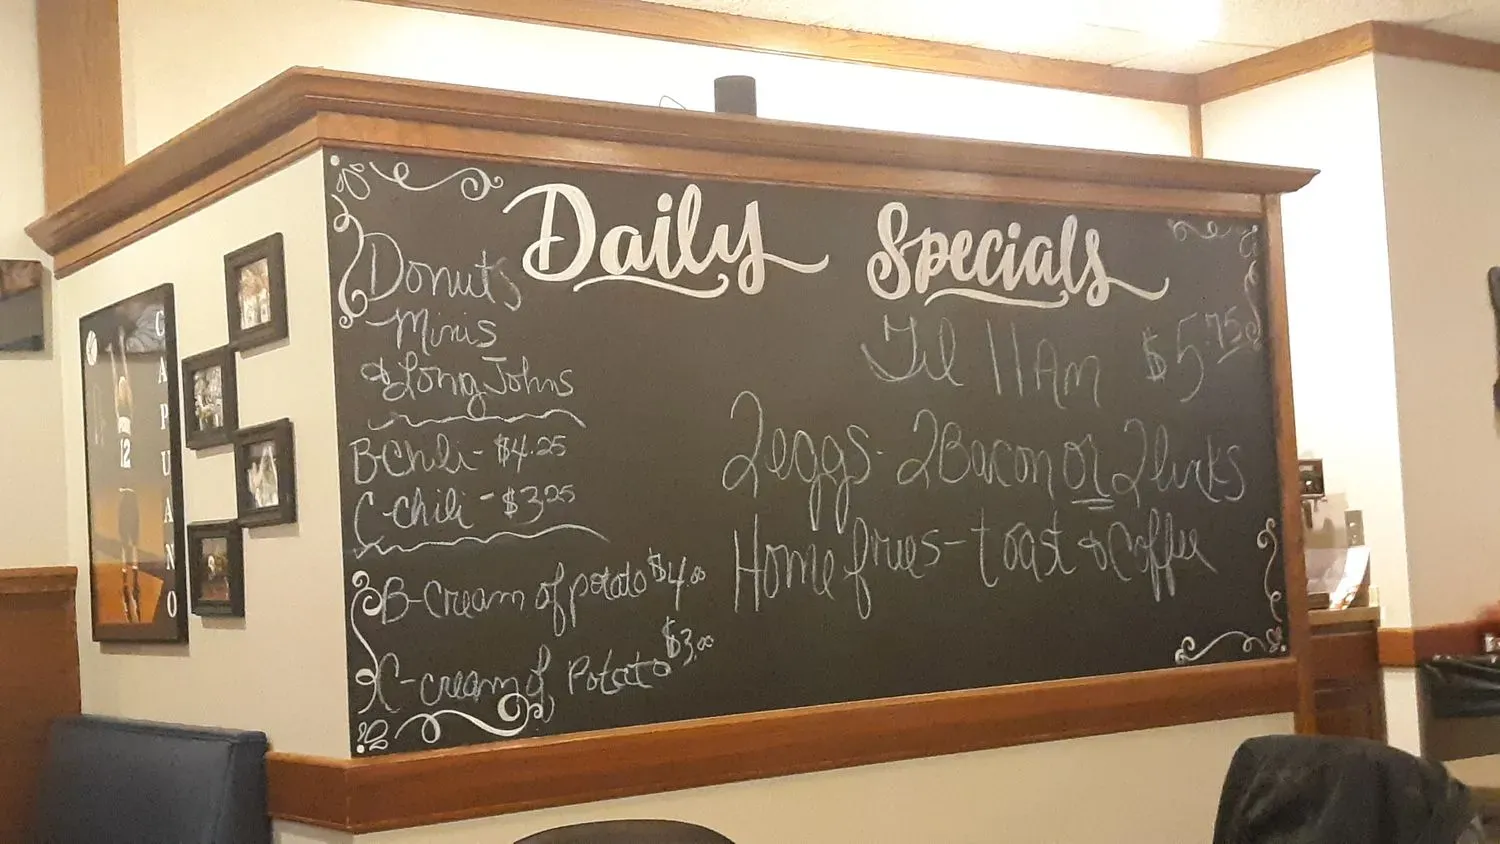 Daily Specials
Donuts
Minis
& Long Johns
B-Chili - $4.25
C-chili - $3.25
B-Cream of potato $4.00
C-cream of Potato $3.00
Til 11 Am $5.75
2 eggs - 2 Bacon or 2 links
Home fries - toast & Coffee
CAPUANO
12